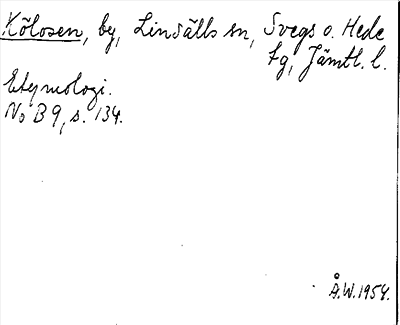 Kölosen, by, Linsälls sn, Svegs o. Hede
tg, Jämtl. l.
Etymologi.
NoB 9, s. 134.
Å.W. 1954.